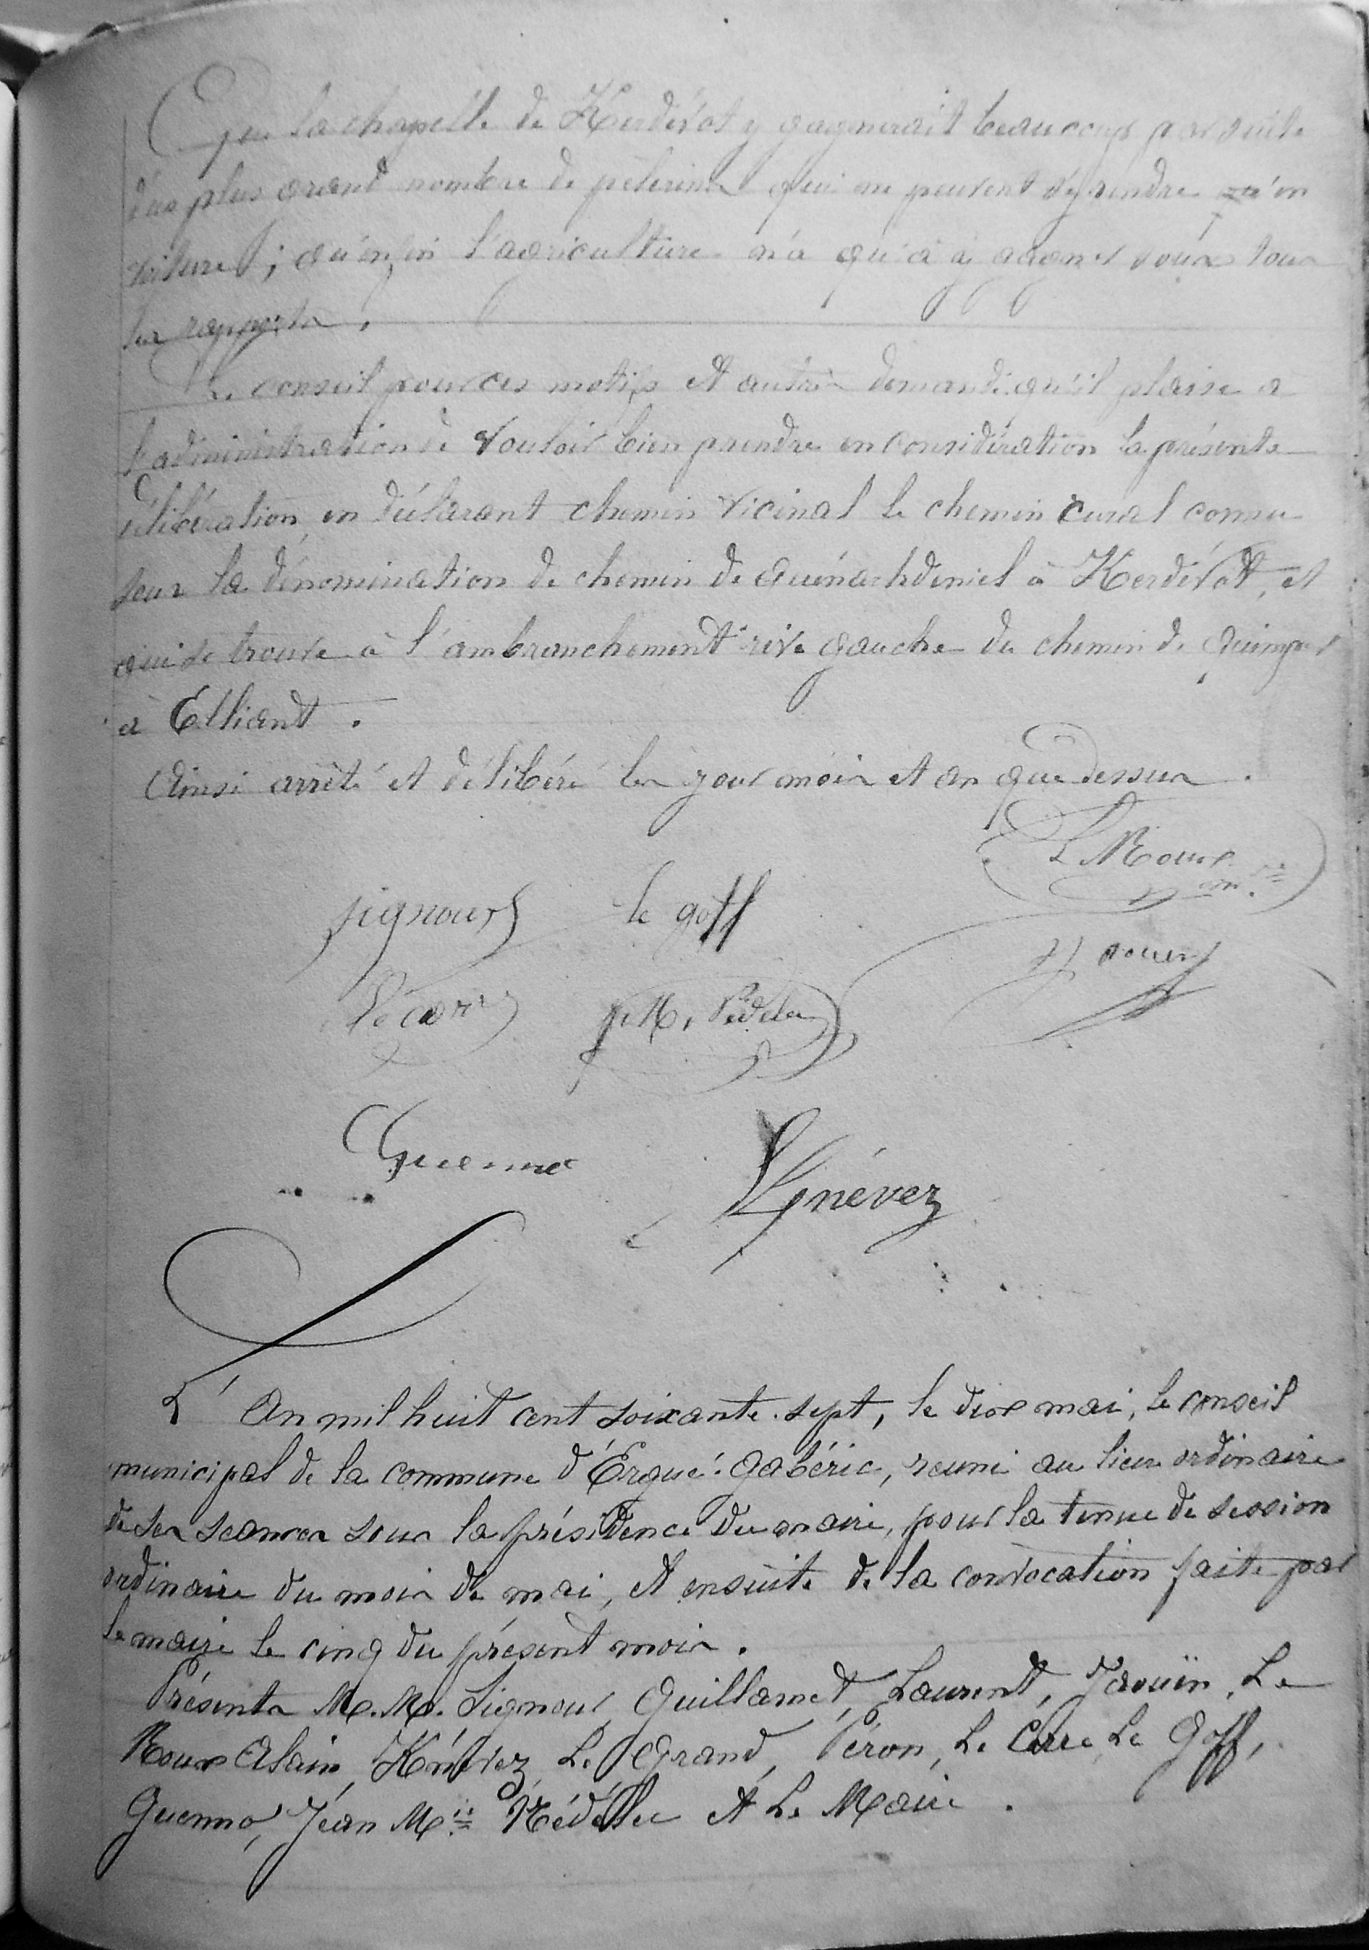 Que la chapelle de Kerdévot y gagnerait beaucoup par suite
d'un plus grand nombre de pélerins qui ne peuvent s'y rendre qu'en
voiture ; qu'enfin l'agriculture n'a qu'à y gagner sous tous
les rapports.
Le conseil pour ces motifs et autres demande qu'il plaise a
l'administration de vouloir bien prendre en considération la présente
délibération en déclarant chemin vicinal le chemin rural connu
sous la dénomination de chemin de Quénachdeniel à Kerdévot, et
qui se trouve à l'ambranchement rive gauche du chemin de Quimper
à Elliant.
Ainsi arrêté et délibéré les jour mois et an que dessus.
Le Roux
Signour le goff
J aouen
Le Carr
J. M. Pédelec
Guenno
Knévez
L'An mil huit cent soixante-sept, le dix mai, le conseil
municipal de la commune d'Ergué-Gabéric, reuni au lieu ordinaire
de ses seances sous la présidence du maire, pour la tenue de session
ordinaire du mois de mai, et ensuite de la convocation faite par
le maire le cinq du présent mois.
Présents M.M. Signour, Guillamet, Laurent, Jaouin, Le
Roux Alain, Knévez, Le Grand, Péron, Le Carre, Le Goff,
Guenno, Jean Mie Nédélec et Le Maire.